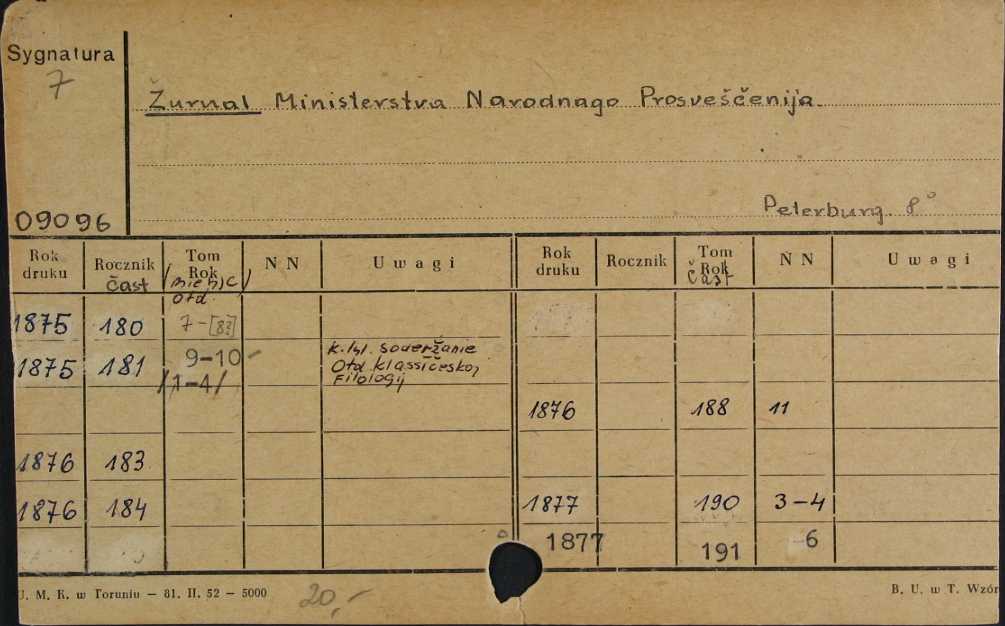 Sygnatura
7
Žurnal Ministerstva Narodnago Prosveščenija
Peterburg. 8°
09096
Rok druku Rocznik Tom Rok N N Uwagi Rok druku Rocznik Tom Rok N N Uwagi
čast otd. Čast
1875 180 7-[8?]
1875 181 9-10 k. tyt. soderžanie
/1-4/ Otd klassičeskoj
Filologij
1876 188 11
1876 183
1876 184 1877 190 3-4
1877 191 -6
U. M. K. w Toruniu — 81. II. 52 — 5000 20,- B. U. w T. Wzór